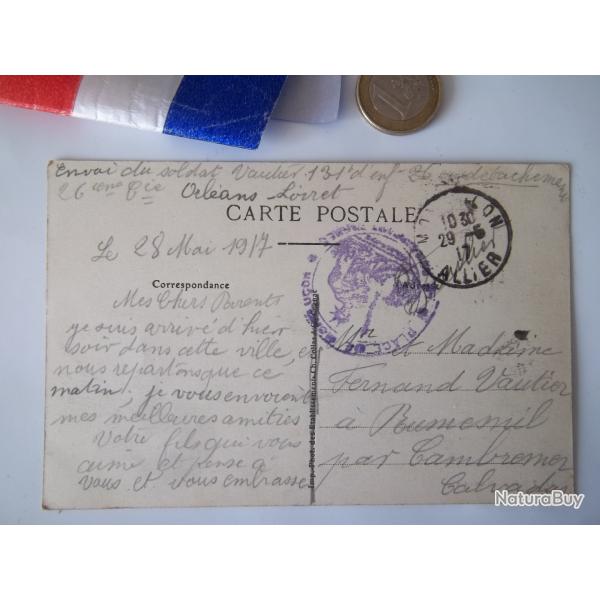 Envoi du soldat Vautier 131e d'inf 26 eme detachement
26 eme Cie Orléans Loiret
CARTE POSTALE
Le 28 Mai 1917
Correspondance
Mes Chers Parents
je suis arrivé d'hier
soir dans cette ville, et
nous repartons que ce
matin, je vous envoient
mes meilleures amitiés
Votre fils qui vous
aime et pense à
vous et vous embrasse
Imp. Phot. des Etablissements Ch. Collas
PLACE DE
MONTLUÇON
MONTLUÇON
10 30
29 - 5
17
ALLIER
Mr et Madame
Fernand Vautier
a Rumesnil
par Cambremer
Calvados
NaturaBuy